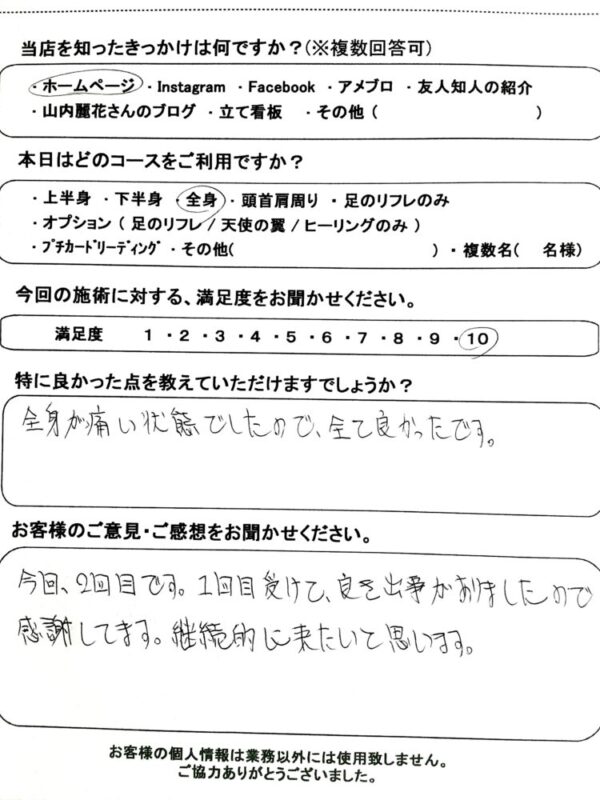 当店を知ったきっかけは何ですか?(※複数回答可)
・ホームページ ・Instagram ・Facebook ・アメブロ ・友人知人の紹介
・山内麗花さんのブログ ・立て看板 ・その他 ( )
本日はどのコースをご利用ですか?
・上半身 ・下半身 ・全身 ・頭首肩周り ・足のリフレのみ
・オプション ( 足のリフレ / 天使の翼 / ヒーリングのみ )
・プチカードリーディング ・その他( ) ・複数名( 名様)
今回の施術に対する、満足度をお聞かせください。
満足度 1 ・2 ・3 ・4 ・5 ・6 ・7 ・8 ・9 ・10
特に良かった点を教えていただけますでしょうか?
全身が痛い状態でしたので、全て良かったです。
お客様のご意見・ご感想をお聞かせください。
今回、2回目です。1回目受けて、良き出事がありましたので
感謝してます。継続的に来たいと思います。
お客様の個人情報は業務以外には使用致しません。
ご協力ありがとうございました。